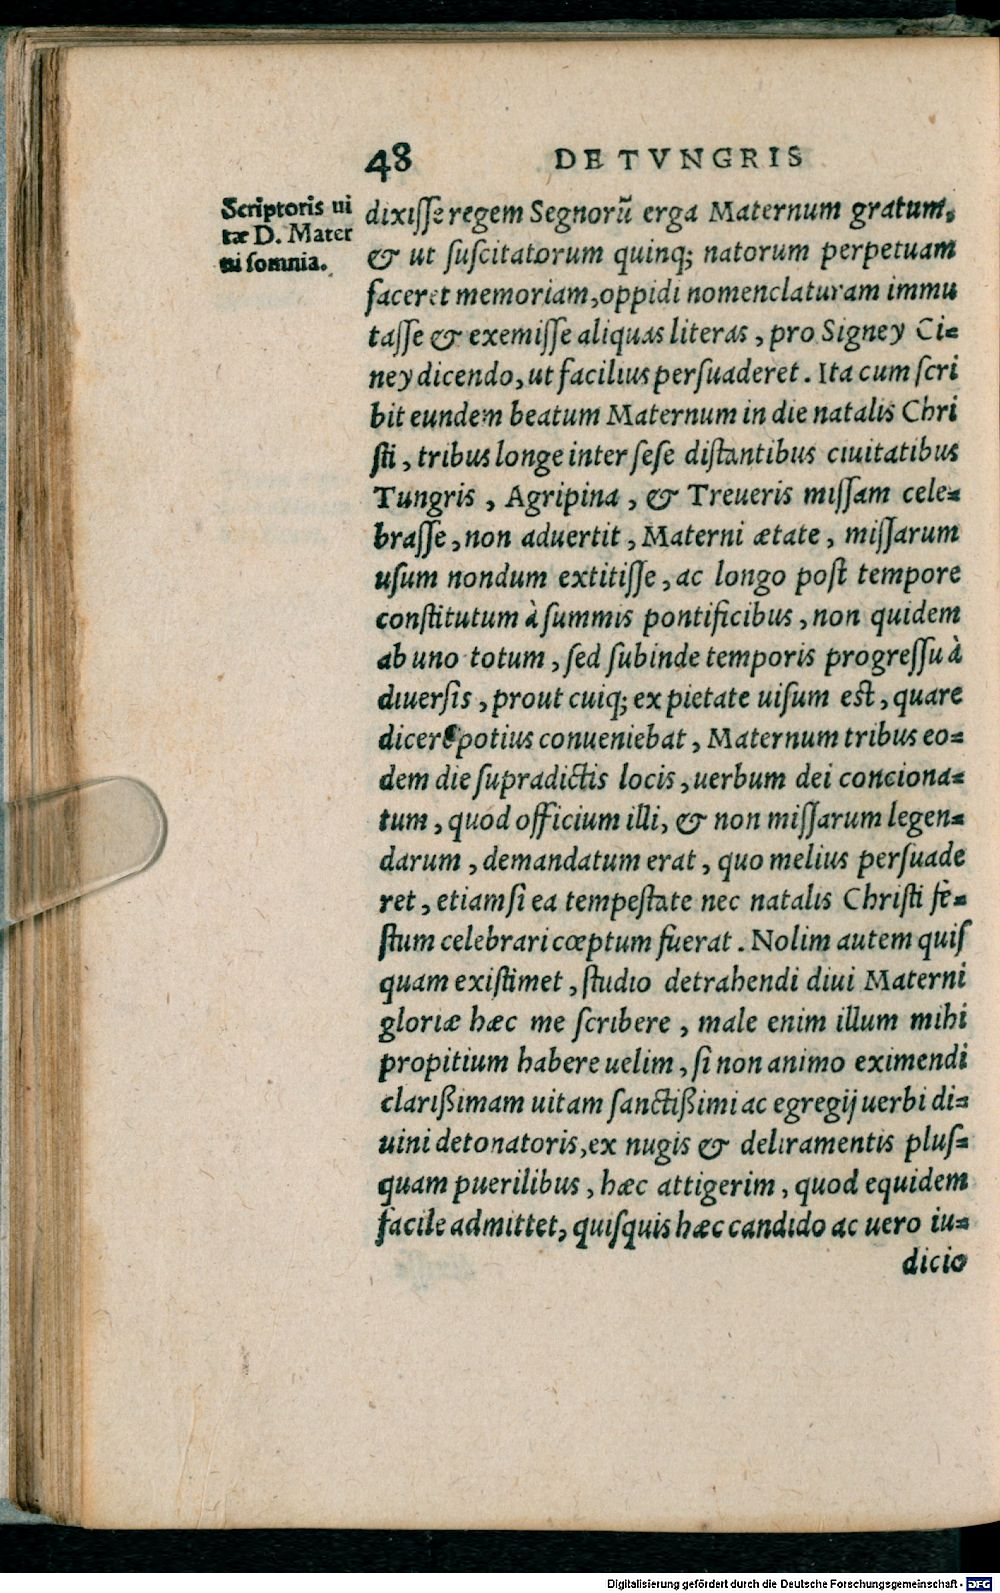 48 DE TVNGRIS
Scriptoris ui
tæ D. Mater
ni somnia.
dixisse regem Segnorũ erga Maternum gratum,
& ut suscitatorum quinq; natorum perpetuam
faceret memoriam, oppidi nomenclaturam immu
tasse & exemisse aliquas literas, pro Signey Ci-
ney dicendo, ut facilius persuaderet. Ita cum scri
bit eundem beatum Maternum in die natalis Chri
sti, tribus longe inter sese distantibus ciuitatibus
Tungris, Agripina, & Treueris missam cele-
brasse, non aduertit, Materni ætate, missarum
usum nondum extitisse, ac longo post tempore
constitutum à summis pontificibus, non quidem
ab uno totum, sed subinde temporis progressu à
diuersis, prout cuiq; ex pietate uisum est, quare
dicere potius conueniebat, Maternum tribus eo-
dem die supradictis locis, uerbum dei conciona-
tum, quod officium illi, & non missarum legen-
darum, demandatum erat, quo melius persuade
ret, etiamsi ea tempestate nec natalis Christi fe-
stum celebrari cœptum fuerat. Nolim autem quis
quam existimet, studio detrahendi diui Materni
gloriæ hæc me scribere, male enim illum mihi
propitium habere uelim, si non animo eximendi
clarißimam uitam sanctißimi ac egregij uerbi di-
uini detonatoris, ex nugis & deliramentis plus-
quam puerilibus, hæc attigerim, quod equidem
facile admittet, quisquis hæc candido ac uero iu-
dicio
Digitalisierung gefördert durch die Deutsche Forschungsgemeinschaft - DFG